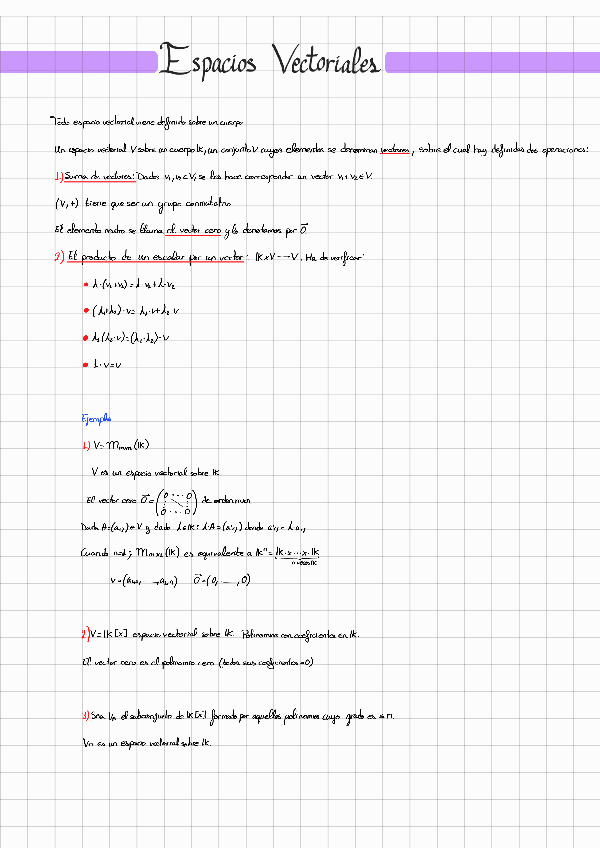 Espacios Vectoriales
Todo espacio vectorial viene definido sobre un cuerpo
Un espacio vectorial V sobre un cuerpo K, un conjunto V cuyos elementos se denominan vectores, sobre el cual hay definidas dos operaciones:
1) Suma de vectores: Dados v₁, v₂ ∈ V, se les hace corresponder un vector v₁ + v₂ ∈ V.
(V, +) tiene que ser un grupo conmutativo
El elemento neutro se llama el vector cero y lo denotamos por 0⃗
2) El producto de un escalar por un vector: K x V → V. Ha de verificar:
• λ·(v₁+v₂) = λ·v₁ + λ·v₂
• (λ₁+λ₂)·v = λ₁·v + λ₂·v
• λ₁(λ₂·v) = (λ₁·λ₂)·v
• 1·v = v
Ejemplo
1) V = Mmxn(K)
V es un espacio vectorial sobre K
El vector cero 0⃗ = (0 ··· 0 ⋮ ⋱ ⋮ 0 ··· 0) de orden mxn
Dada A = (aᵢⱼ) ∈ V y dado λ ∈ K : λ·A = (a'ᵢⱼ) donde a'ᵢⱼ = λ·aᵢⱼ
Cuando m=1; M₁ₓₙ(K) es equivalente a Kⁿ = K x ··· x K
n veces K
v = (a₁,₁, ..., a₁,ₙ) 0⃗ = (0, ..., 0)
2) V = K[x] espacio vectorial sobre K. Polinomios con coeficientes en K.
El vector cero es el polinomio cero (todos sus coeficientes = 0)
3) Sea Vₙ el subconjunto de K[x] formado por aquellos polinomios cuyo grado es ≤ n.
Vₙ es un espacio vectorial sobre K.